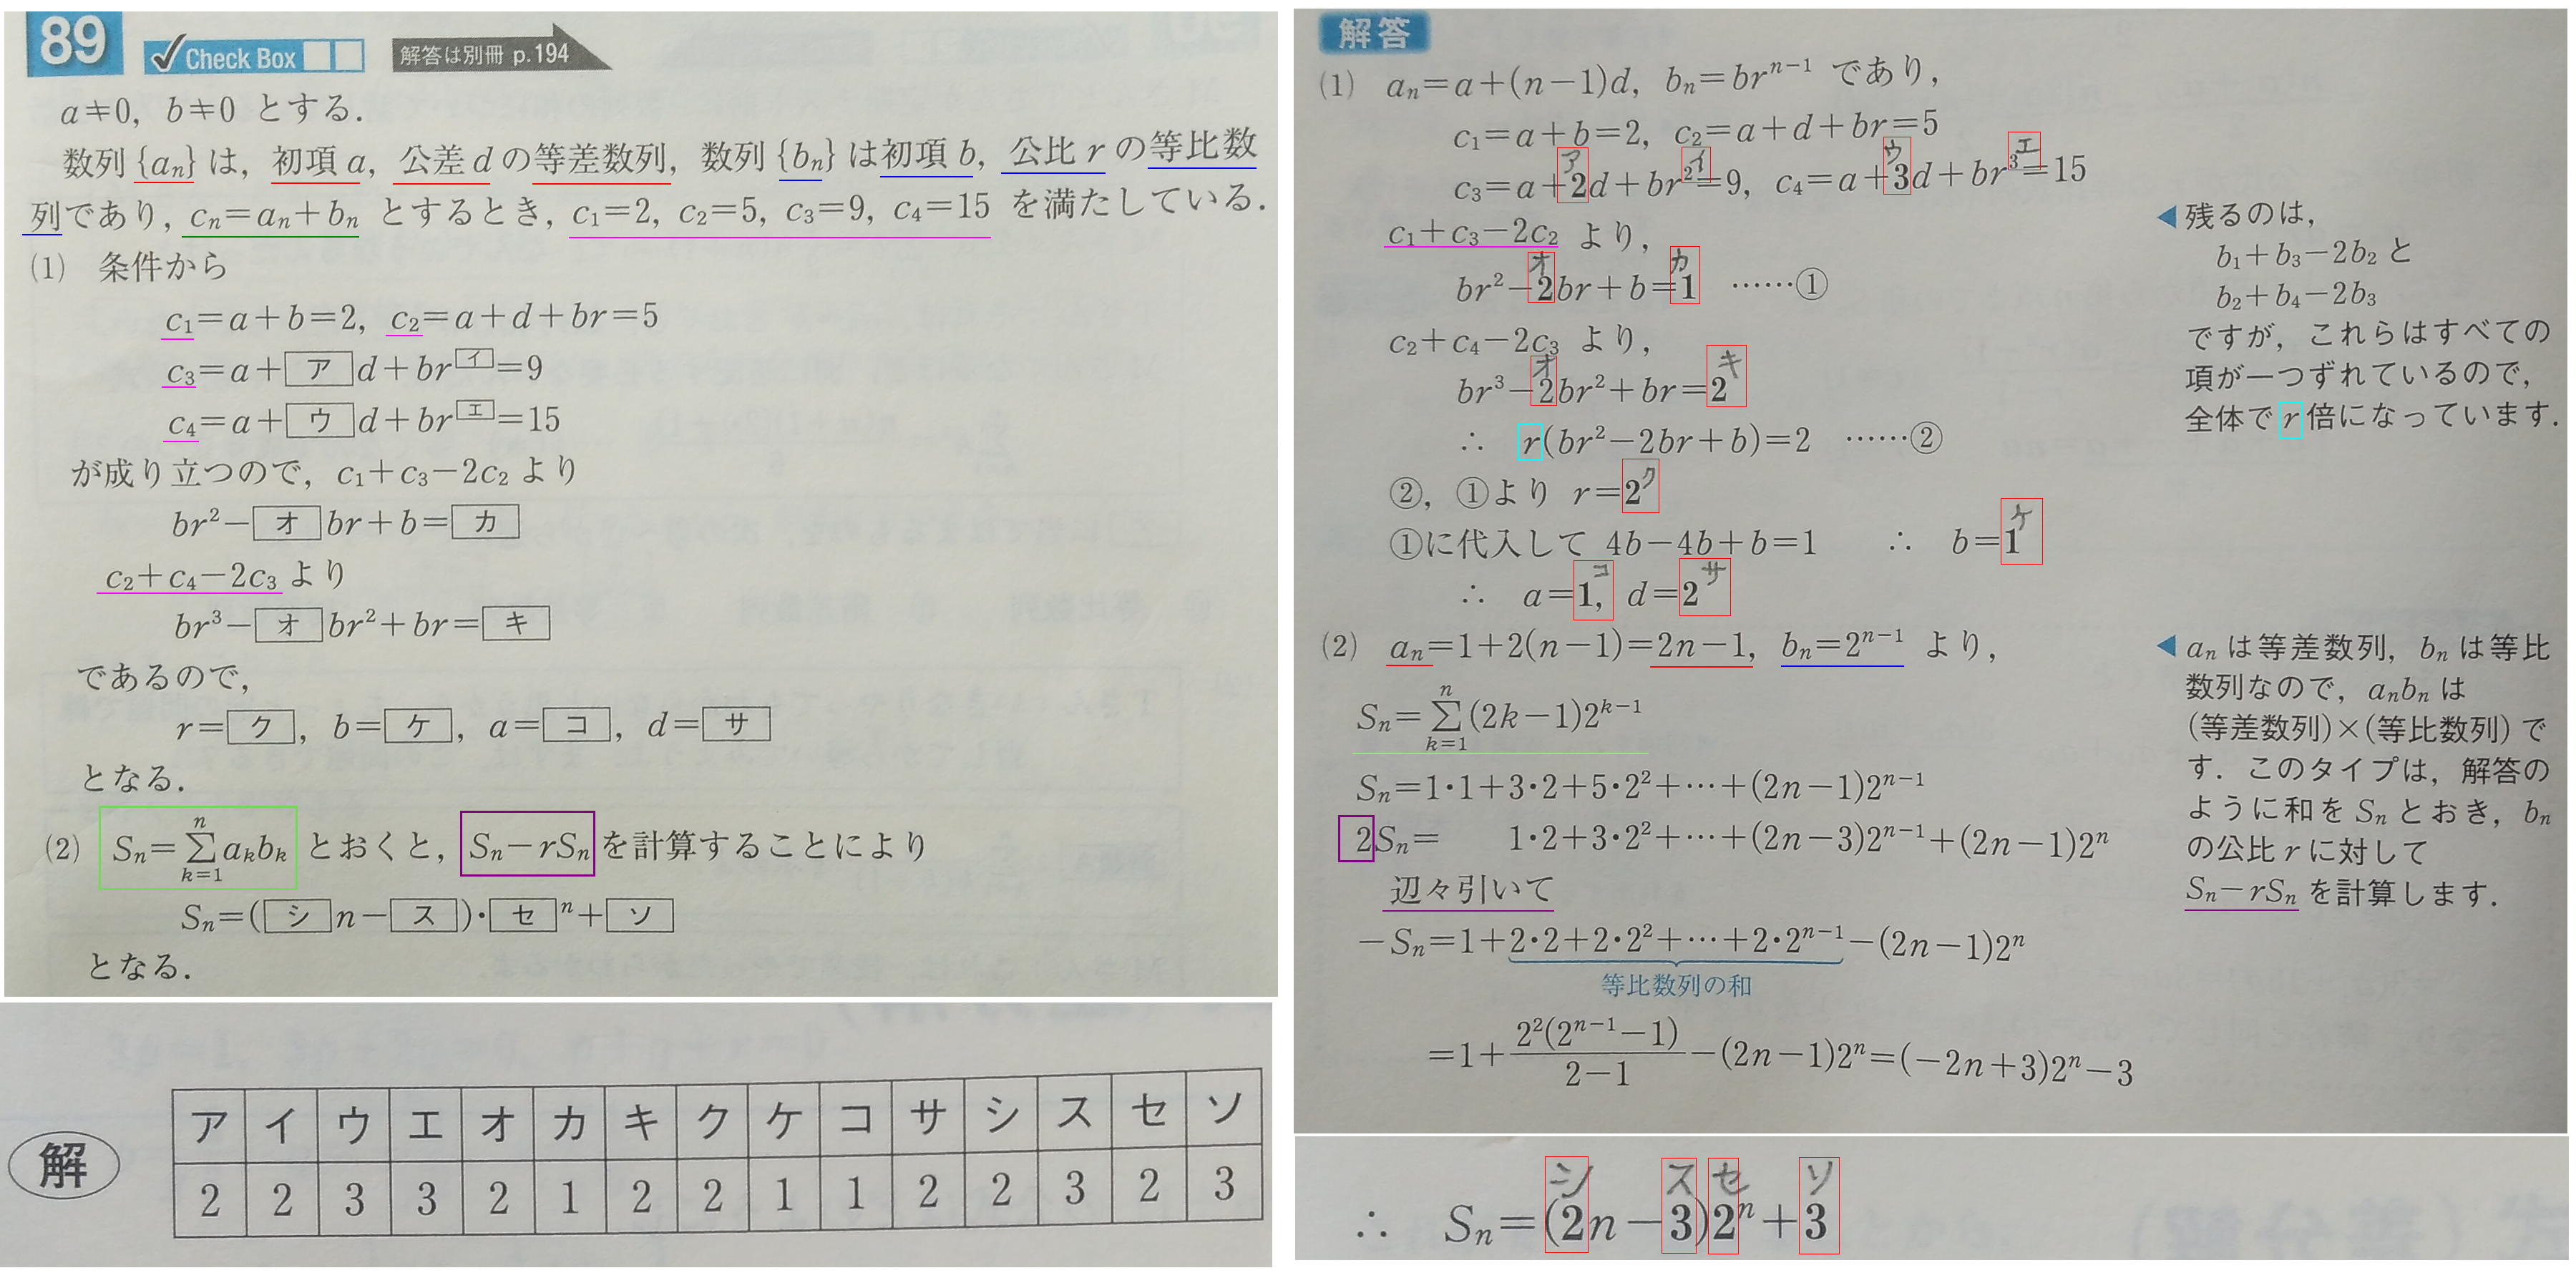 89 Check Box 解答は別冊 p.194
a≠0, b≠0 とする．
数列{aₙ}は，初項a，公差dの等差数列，数列{bₙ}は初項b，公比rの等比数
列であり，cₙ=aₙ+bₙ とするとき，c₁=2, c₂=5, c₃=9, c₄=15 を満たしている．
(1) 条件から
c₁=a+b=2, c₂=a+d+br=5
c₃=a+[ア]d+br^[イ]=9
c₄=a+[ウ]d+br^[エ]=15
が成り立つので，c₁+c₃−2c₂より
br²−[オ]br+b=[カ]
c₂+c₄−2c₃より
br³−[オ]br²+br=[キ]
であるので，
r=[ク], b=[ケ], a=[コ], d=[サ]
となる．
(2) Sₙ=∑_{k=1}^{n} aₖbₖ とおくと，Sₙ−rSₙを計算することにより
Sₙ=([シ]n−[ス])·[セ]ⁿ+[ソ]
となる．
解
ア イ ウ エ オ カ キ ク ケ コ サ シ ス セ ソ
2 2 3 3 2 1 2 2 1 1 2 2 3 2 3
解答
(1) aₙ=a+(n−1)d, bₙ=brⁿ⁻¹ であり，
c₁=a+b=2, c₂=a+d+br=5
ア イ ウ エ
c₃=a+2d+br²=9, c₄=a+3d+br³=15
c₁+c₃−2c₂ より，
オ カ
br²−2br+b=1 ……①
c₂+c₄−2c₃ より，
オ キ
br³−2br²+br=2
∴ r(br²−2br+b)=2 ……②
②，①より r=2 ク
①に代入して 4b−4b+b=1 ∴ b=1 ケ
∴ a=1, コ d=2 サ
◀残るのは，
b₁+b₃−2b₂と
b₂+b₄−2b₃
ですが，これらはすべての
項が一つずれているので，
全体でr倍になっています．
(2) aₙ=1+2(n−1)=2n−1, bₙ=2ⁿ⁻¹ より，
Sₙ=∑_{k=1}^{n} (2k−1)2ᵏ⁻¹
Sₙ=1·1+3·2+5·2²+⋯+(2n−1)2ⁿ⁻¹
2Sₙ= 1·2+3·2²+⋯+(2n−3)2ⁿ⁻¹+(2n−1)2ⁿ
辺々引いて
−Sₙ=1+2·2+2·2²+⋯+2·2ⁿ⁻¹−(2n−1)2ⁿ
等比数列の和
=1+2²(2ⁿ⁻¹−1)/(2−1)−(2n−1)2ⁿ=(−2n+3)2ⁿ−3
◀aₙは等差数列，bₙは等比
数列なので，aₙbₙは
(等差数列)×(等比数列)で
す．このタイプは，解答の
ように和をSₙとおき，bₙ
の公比rに対して
Sₙ−rSₙを計算します．
シ ス セ ソ
∴ Sₙ=(2n−3)2ⁿ+3